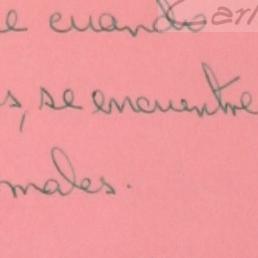 e cuando
s, se encuentre
males.